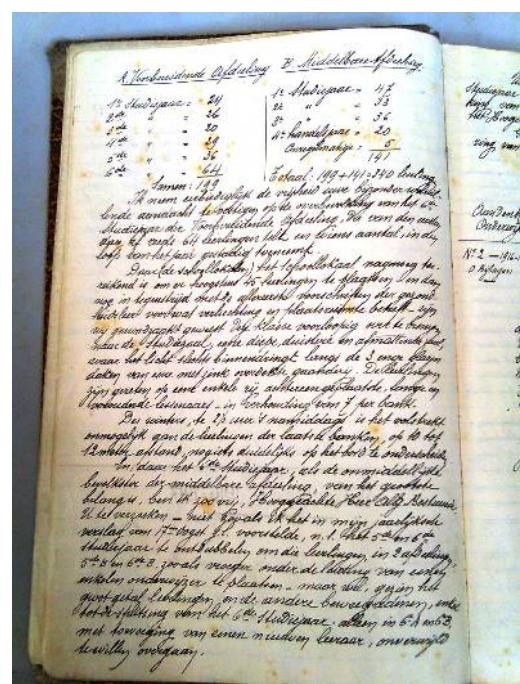 A. Voorbereidende Afdeeling B. Middelbare Afdeeling.
1e Studiejaar = 24
2de " = 26
3de " = 20
4de " = 29
5de " = 36
6de " = 64
Samen: 199
1e Studiejaar = 47
2e " = 33
3e " = 36
4e handelsjaar = 20
Onregelmatige = 5
141
Totaal: 199 + 141 = 340 leerling.
Ik neem eerbiediglijk de vrijheid uwe bijzonder
aandacht te vestigen op de overbevolking van het 6de
Studiejaar der Voorbereidende Afdeeling, die van den
reeds 64 leerlingen telt en wiens aantal, in den
loop van het jaar gestadig toeneemt.
Daar de het schoollokaal nagenoeg
is om ten hoogste 45 leerlingen te plaatsen en dan
nog in tegenstrijd met de voorschriften der gezond
voorwat verlichting en plaatsruimte betreft - zijn
wij genoodzaakt geweest deze klasse voorloopig
naar de Studiezaal, eene diepe, duistere en zaal,
waar het licht slechts binnendringt langs de 3 enge
daken van eene met zink overdekte De leerlingen
zijn gezeten op eene enkele rij achtereengeplaatste, lange en
lessenaars - in verhouding van 7 per bank.
Des winters, te 2 1/2 uur 's namiddags is het volstrekt
onmogelijk aan de leerlingen der laatste banken, op 10 tot
12 meter afstand, nog iets duidelijks op het bord te onderscheiden.
En, daar het 6de Studiejaar, als de onmiddellijke
der middelbare afdeeling, van het grootste
belang is, ben ik zoo vrij, Hooggeachte Heer Alg. Bestuurder
U te verzoeken - niet zooals ik het in mijn jaarlijksch
verslag van 17n Oogst j.l. voorstelde, n.l. het 5de en 6de
studiejaar te ontdubbelen om die leerlingen in 2 afdeelingen,
5de B en 6de B, zooals vroeger onder de leiding van eenen
enkelen onderwijzer te plaatsen - maar wel, gezien het
groot getal leerlingen en de andere beweegredenen, enkel
tot de splitsing van het 6de Studiejaar alleen in 6de A en 6de B,
met toevoeging van eenen nieuwen leeraar, onverwijld
te willen overgaan.
Studiejaar
van
het Hooge
ring, van
Aan den
Onderwijs
No 2 - 1916-
0 Bijlagen